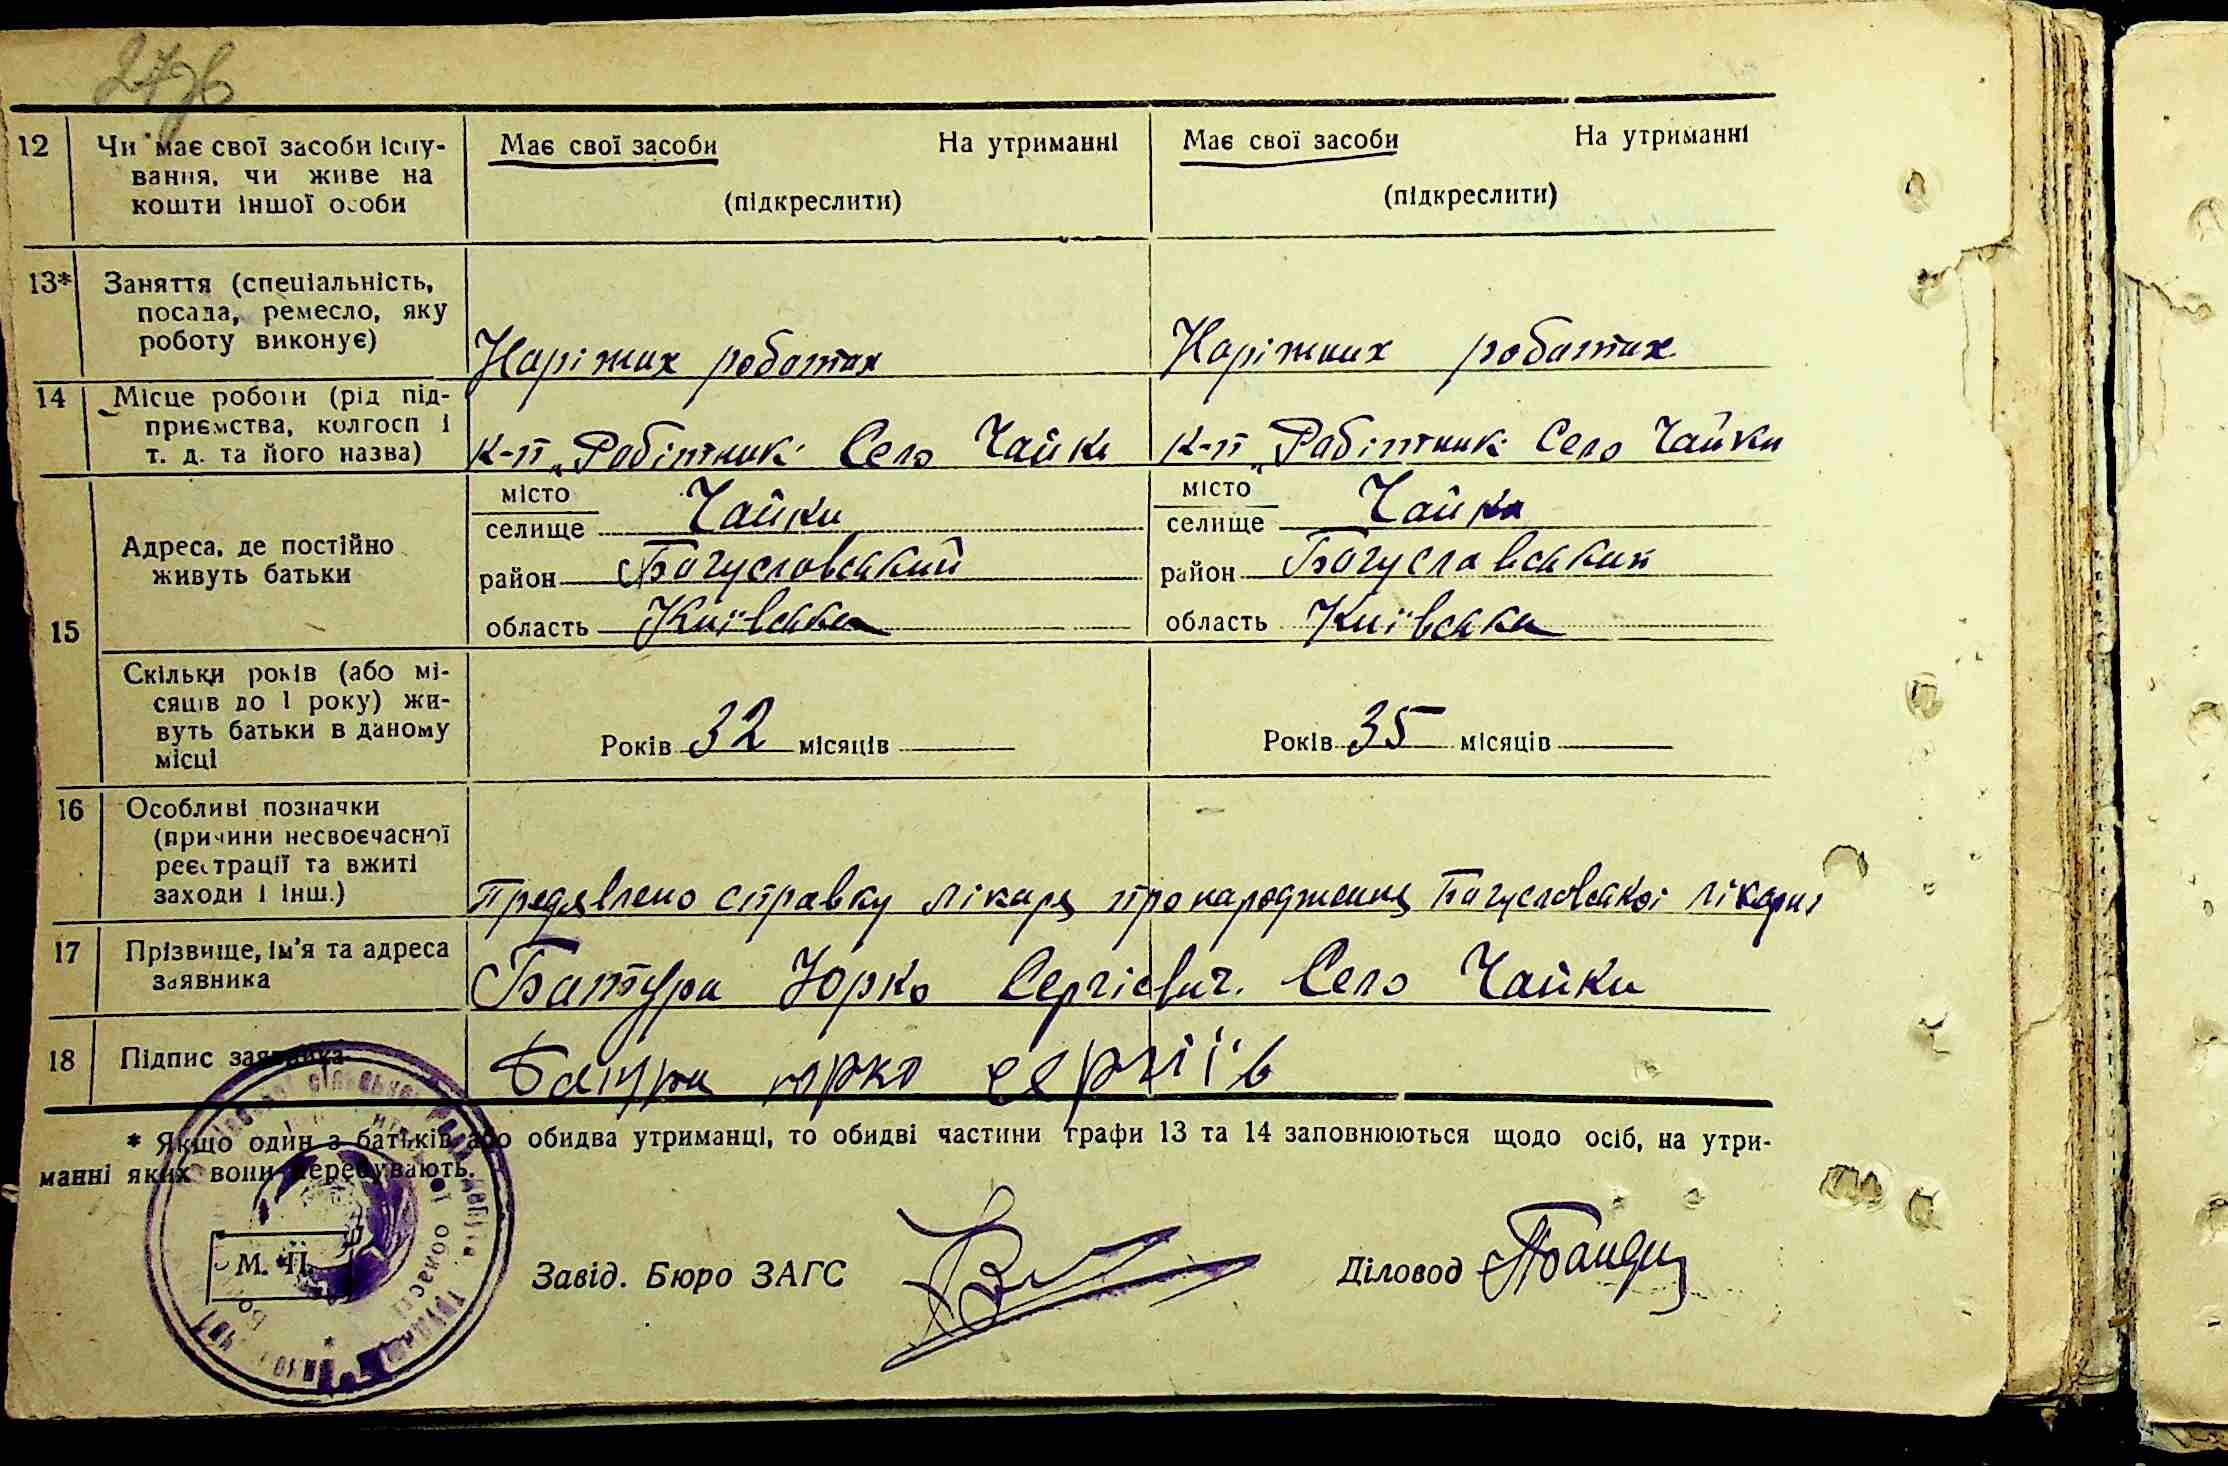 27зв
12 Чи має свої засоби існу-
вання, чи живе на
кошти іншої особи
Має свої засоби На утриманні
(підкреслити)
Має свої засоби На утриманні
(підкреслити)
13* Заняття (спеціальність,
посада, ремесло, яку
роботу виконує)
Наріжних роботах
Наріжних роботах
14 Місце роботи (рід під-
приємства, колгосп і
т. д. та його назва)
к-п „Робітник" Село Чайки
к-п „Робітник" Село Чайки
15 Адреса, де постійно
живуть батьки
місто
селище Чайки
район Богуславський
область Київська
місто
селище Чайки
район Богуславський
область Київська
Скільки років (або мі-
сяців до 1 року) жи-
вуть батьки в даному
місці
Років 32 місяців
Років 35 місяців
16 Особливі позначки
(причини несвоєчасної
реєстрації та вжиті
заходи і інш.)
Предявлено справку лікаря про народження Богуславської лікарні
17 Прізвище, ім'я та адреса
заявника
Батура Юрко Сергієвич. Село Чайки
18 Підпис заявника
Батура юрко сергіїв
* Якщо один з батьків або обидва утриманці, то обидві частини графи 13 та 14 заповнюються щодо осіб, на утри-
манні яких вони перебувають.
М. П.
Завід. Бюро ЗАГС
Діловод